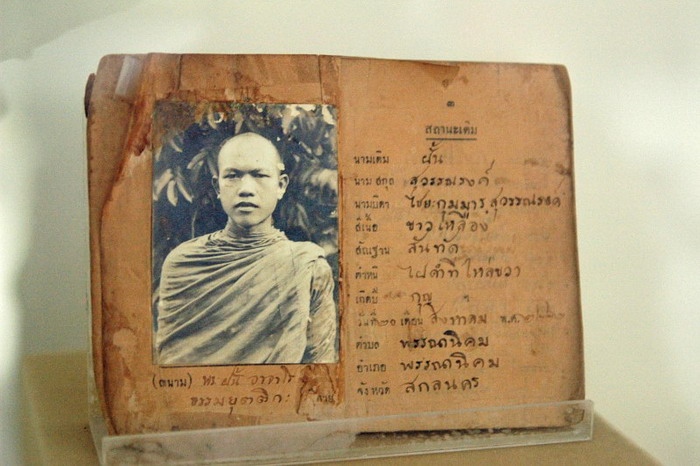 ๓
สถานะเดิม
นามเดิม ฝั้น
นามสกุล สุวรรณรงค์
นามบิดา ไชยะกุมมาร สุวรรณรงค์
สีเนื้อ ขาวเหลือง
สัณฐาน สันทัด
ตำหนิ ไฝดำที่ไหล่ขวา
เกิดปี กุญ
วันที่ ๒๐ เดือน สิงหาคม พ.ศ.
ตำบล พรรณานิคม
อำเภอ พรรณานิคม
จังหวัด สกลนคร
(ฉนาม) พระฝั้น อาจาโร
ธรรมยุตติกะ